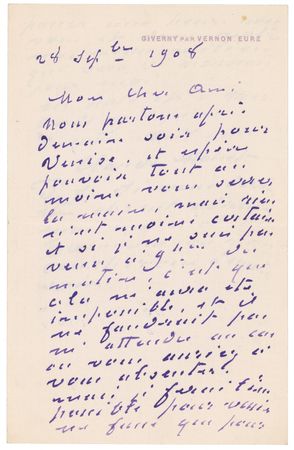 GIVERNY PAR VERNON. EURE
28 Sepbre 1908
Mon cher Ami
Nous partons après
demain soir pour
Venise, et espère
pouvoir tout au
moins vous serrer
la main, mais rien
n'est moins certain
et si je ne suis pas
venu à
matin c'est que
cela m'aura été
impossible, et il
ne faudrait pas
m'attendre au cas
où vous auriez à
vous absenter.
mais, si ferai tout
possible pour venir
ne fusse que pour